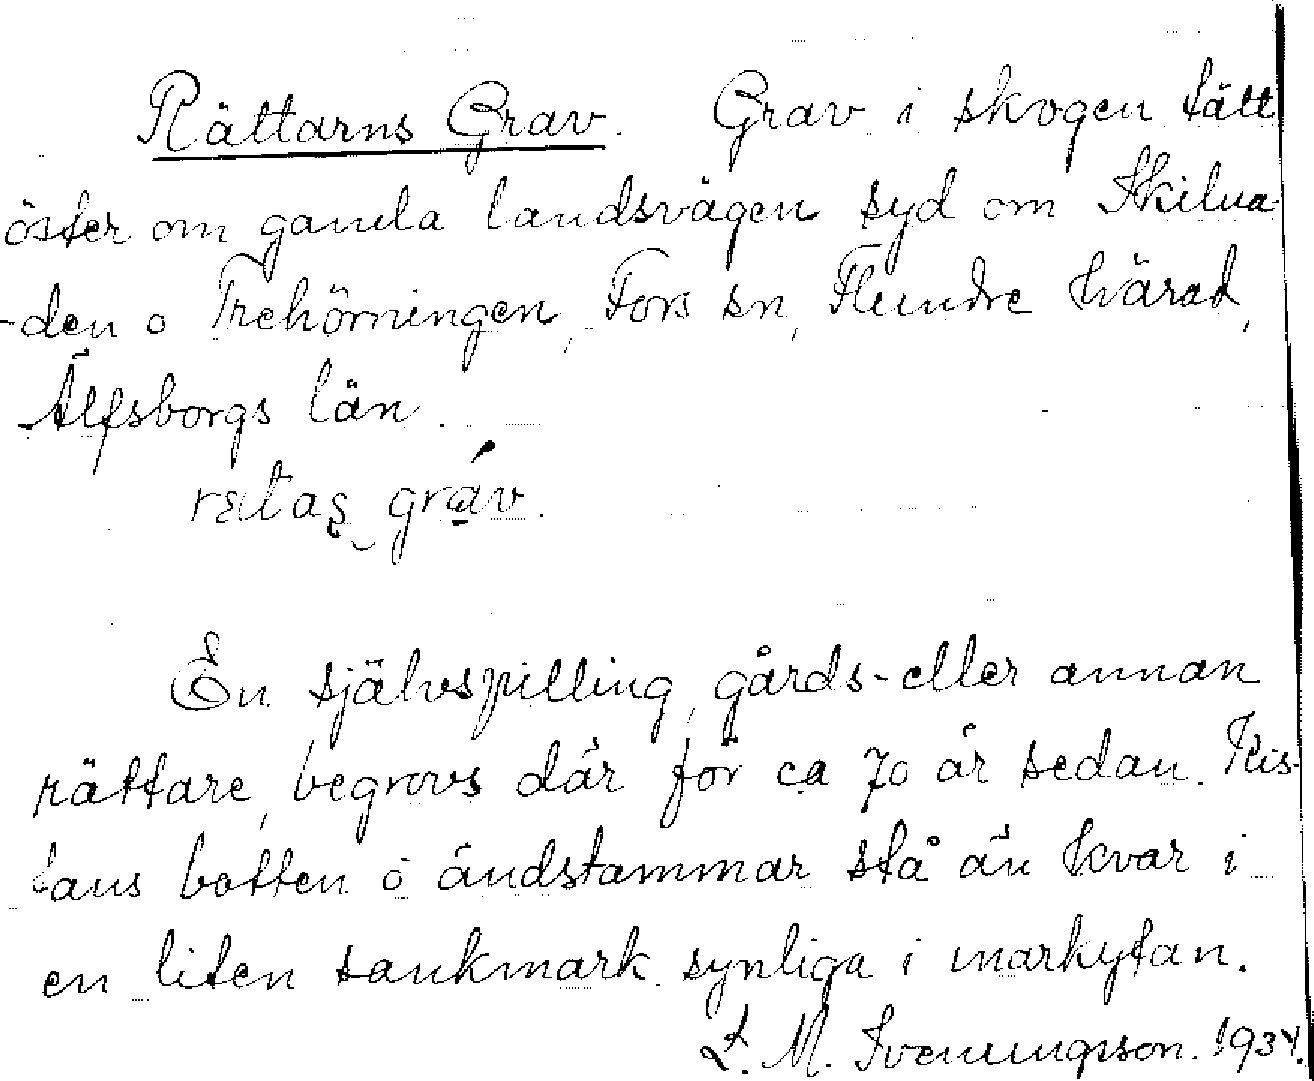 Rättarns Grav. Grav i skogen tätt
öster om gamla landsvägen syd om Skilna
-den o Trehörningen, Fors sn, Flundre härad,
Älfsborgs län.
rætaș gráv.
En självspilling, gårds- eller annan
rättare, begrovs där för ca 70 år sedan. Kis-
tans botten o ändstammar stå än kvar i
en liten sankmark synliga i markytan.
L. M. Svenungsson. 1934.